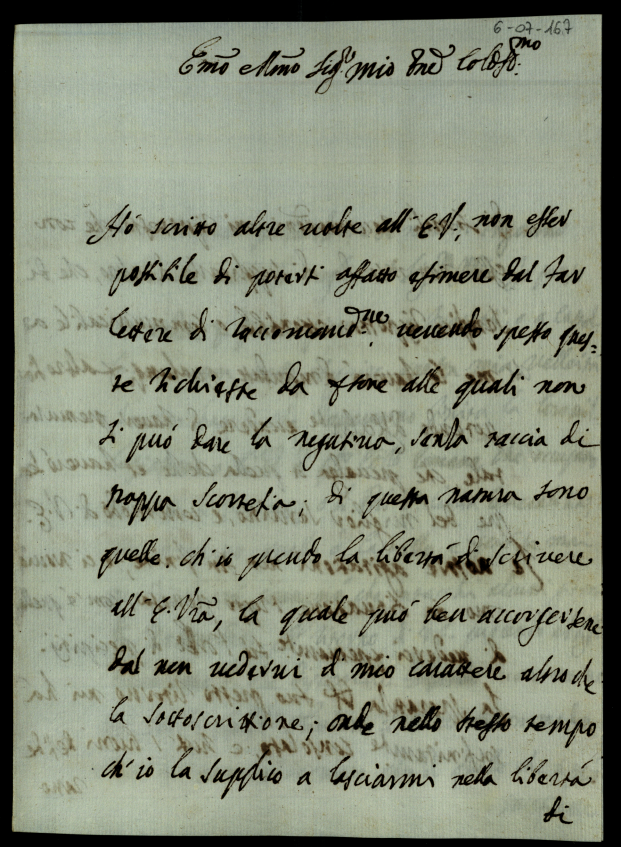 6-07-167
Emo e Rmo Sigr. mio Pne Colmo
Hó scritto altre uolte all' E.V., non esser
possibile di potersi affatto esimere dal far
lettere di raccomandne, uenendo spesso ques=
te richieste da psone alle quali non
si può dare la negatiua, senza taccia di
troppa scortesia; di questa natura sono
quelle, ch'io prendo la libertá di scriuere
all' E. Vra, la quale può ben accorgersene
dal non uederui di mio carattere altro che
la sottoscrittione; onde nello stesso tempo
ch'io la supplico a lasciarmi nella libertá
di